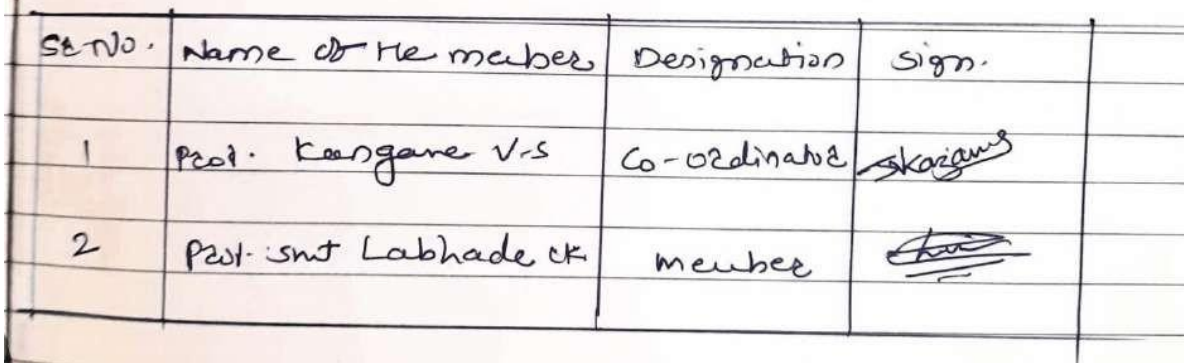 Sr No. Name of the member Designation Sign.
1 Prof. Kangane V-S Co-ordinator
2 Prof. Smt Labhade CK member